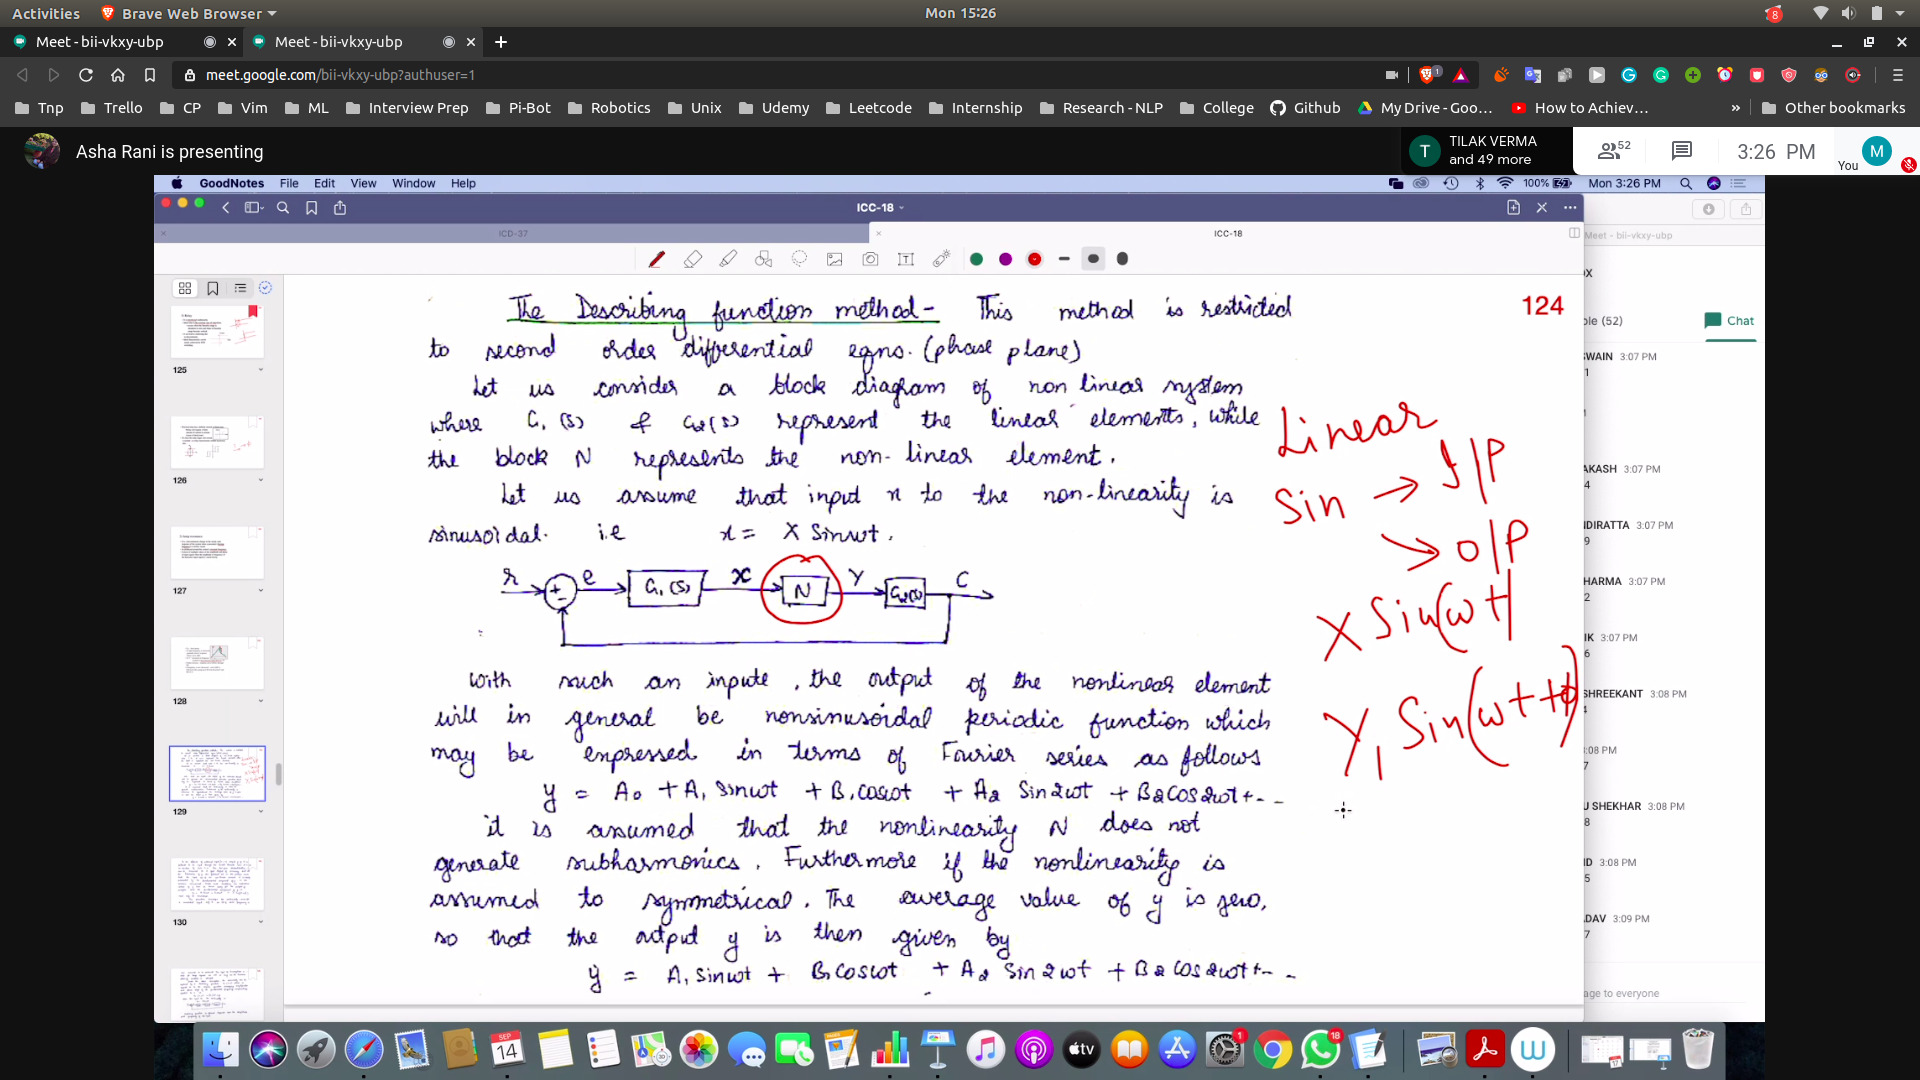 Activities
Brave Web Browser
Mon 15:26
8
Meet - bii-vkxy-ubp
Meet - bii-vkxy-ubp
meet.google.com/bii-vkxy-ubp?authuser=1
1
Tnp
Trello
CP
Vim
ML
Interview Prep
Pi-Bot
Robotics
Unix
Udemy
Leetcode
Internship
Research - NLP
College
Github
My Drive - Goo...
How to Achiev...
»
Other bookmarks
Asha Rani is presenting
T
TILAK VERMA
and 49 more
52
3:26 PM
You
M
GoodNotes File Edit View Window Help
100%
Mon 3:26 PM
ICC-18
ICD-37
ICC-18
Meet - bii-vkxy-ubp
124
The Describing function method- This method is restricted
to second order differential eqns. (phase plane)
Let us consider a block diagram of non linear system
where G1(s) & G2(s) represent the linear elements, while
the block N represents the non-linear element.
Let us assume that input x to the non-linearity is
sinusoidal. i.e x = X Sinwt.
r + - e G1(s) x N Y G2(s) C
With such an inpute, the output of the nonlinear element
will in general be nonsinusoidal periodic function which
may be expressed in terms of Fourier series as follows
y = A0 + A1 Sinwt + B1 coswt + A2 Sin2wt + B2 Cos2wt + - - -
it is assumed that the nonlinearity N does not
generate subharmonics. Furthermore if the nonlinearity is
assumed to symmetrical. The average value of y is zero,
so that the output y is then given by
y = A1 sinwt + B1 coswt + A2 Sin2wt + B2 Cos2wt + - - -
Linear
Sin → I/P
→ O/P
X Sin(ωt)
Y1 Sin(ωt+ϕ)
125
126
127
128
129
130
ple (52)
Chat
SWAIN 3:07 PM
1
AKASH 3:07 PM
4
NDIRATTA 3:07 PM
9
HARMA 3:07 PM
2
IK 3:07 PM
6
SHREEKANT 3:08 PM
3:08 PM
U SHEKHAR 3:08 PM
8
ID 3:08 PM
5
DAV 3:09 PM
age to everyone
SEP
14
tv
1
18